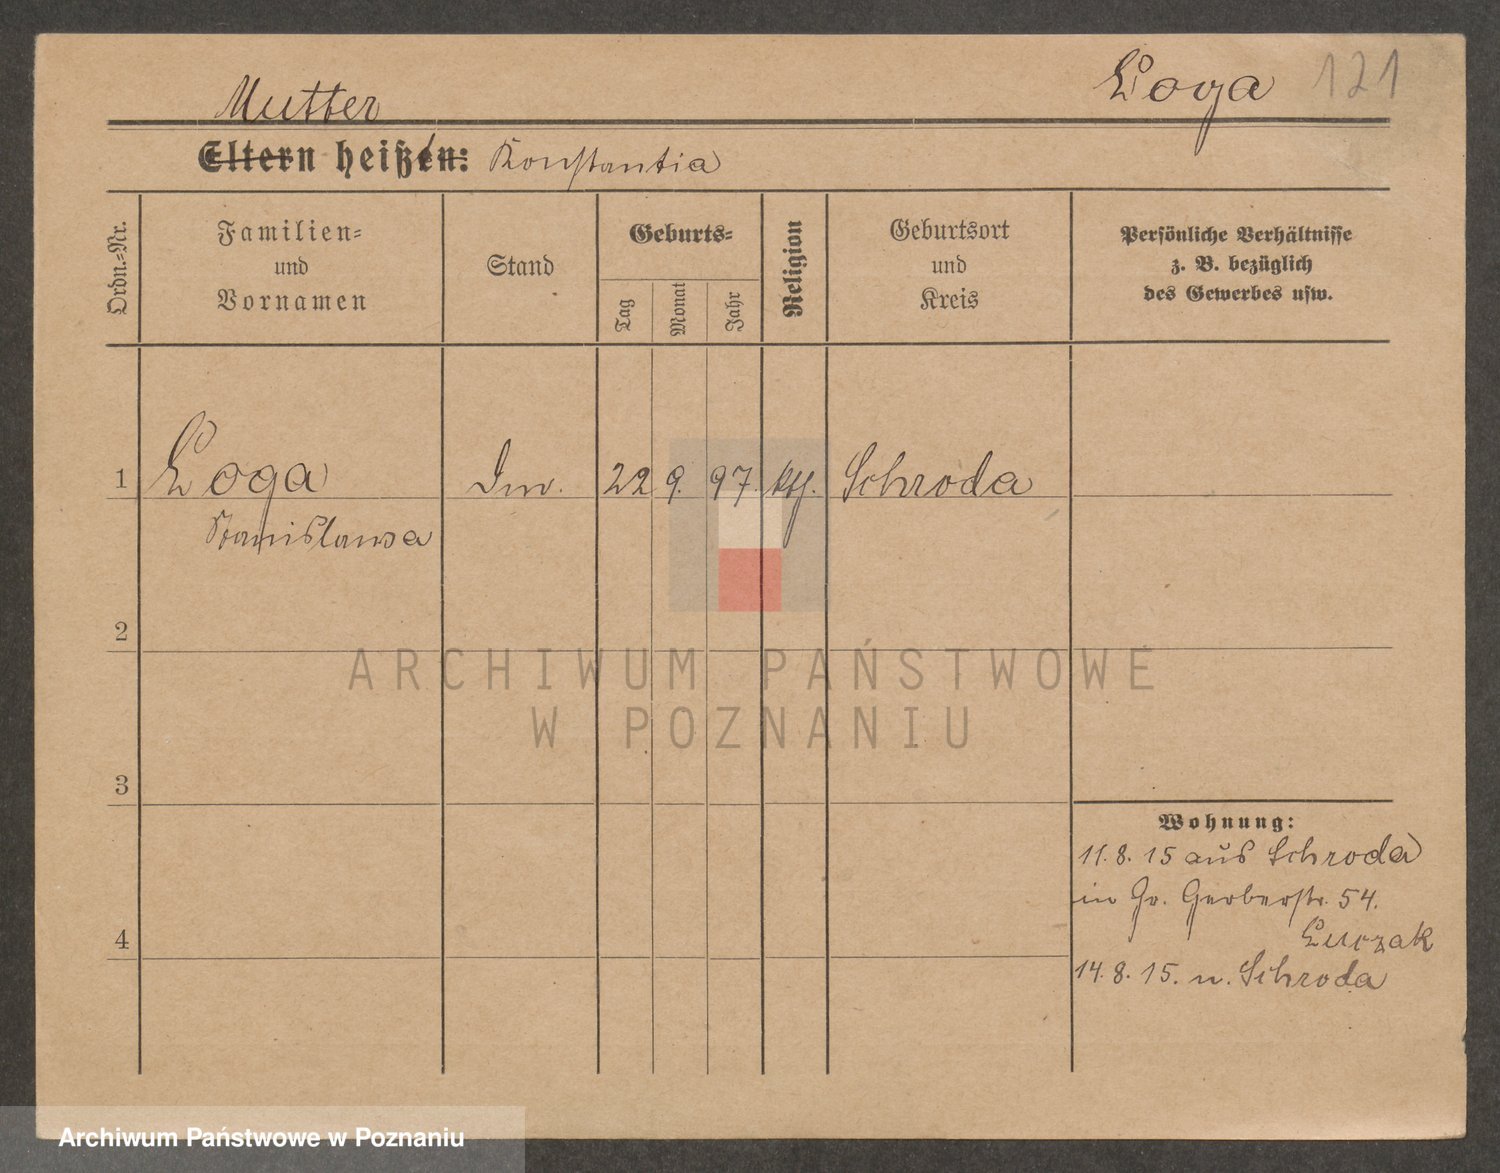 Loga 121
Mutter
Eltern heißen: Konstantia
Ordn.=Nr.
Familien=
und
Vornamen
Stand
Geburts=
Tag
Monat
Jahr
Religion
Geburtsort
und
Kreis
Persönliche Verhältnisse
z. B. bezüglich
des Gewerbes usw.
1 Loga 22 9. 97. kth. Schroda
Stanislawa
2
3
4
Wohnung:
11. 8. 15 aus Schroda
in Gr. Gerberstr. 54.
Luczak
14. 8. 15. n. Schroda
ARCHIWUM PAŃSTWOWE
W POZNANIU
Archiwum Państwowe w Poznaniu